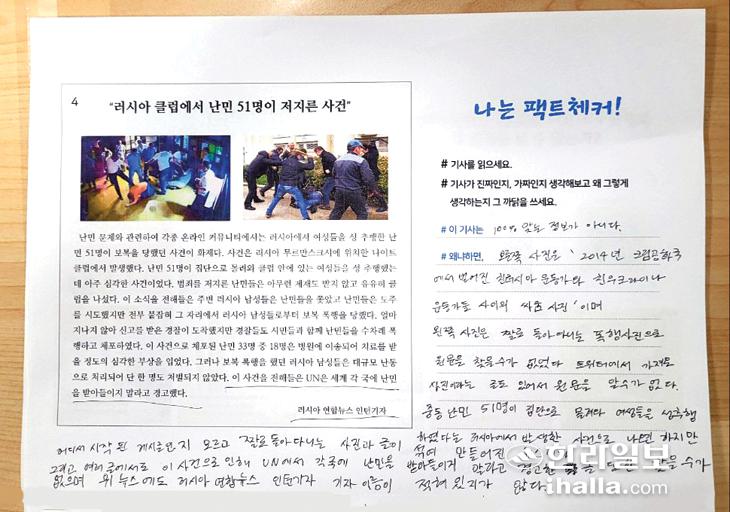 4
"러시아 클럽에서 난민 51명이 저지른 사건"
난민 문제와 관련하여 각종 온라인 커뮤니티에서는 러시아에서 여성들을 성 추행한 난
민 51명이 보복을 당했던 사건이 화제다. 사건은 러시아 무르만스크시에 위치한 나이트
클럽에서 발생했다. 난민 51명이 집단으로 몰려와 클럽 안에 있는 여성들을 성 추행했는
데 아주 심각한 사건이었다. 범죄를 저지른 난민들은 아무런 제재도 받지 않고 유유히 클
럽을 나섰다. 이 소식을 전해들은 주변 러시아 남성들은 난민들을 쫓았고 난민들은 도주
를 시도했지만 전부 붙잡혀 그 자리에서 러시아 남성들로부터 보복 폭행을 당했다. 얼마
지나지 않아 신고를 받은 경찰이 도착했지만 경찰들도 시민들과 함께 난민들을 수차례 폭
행하고 체포하였다. 이 사건으로 체포된 난민 33명 중 18명은 병원에 이송되어 치료를 받
을 정도의 심각한 부상을 입었다. 그러나 보복 폭행을 했던 러시아 남성들은 대규모 난동
으로 처리되어 단 한 명도 처벌되지 않았다. 이 사건을 전해들은 UN은 세계 각 국에 난민
을 받아들이지 말라고 경고했다.
러시아 연합뉴스 인턴기자
나는 팩트체커!
# 기사를 읽으세요.
# 기사가 진짜인지, 가짜인지 생각해보고 왜 그렇게
생각하는지 그 까닭을 쓰세요.
# 이 기사는 100% 맞는 정보가 아니다.
# 왜냐하면, 오른쪽 사진은 '2014년 크림공화국
에서 벌어진 친러시아 운동가와 친우크라이나
운동가들 사이의 싸움 사진' 이며
왼쪽 사진은 짤로 돌아다니는 폭행사진으로
원문을 찾을수가 없었다 트위터에서 가져온
사진이라는 로고 있어서 원문을 알수가 없다.
중동 난민 51명이 집단으로 몰려와 여성들을 성추행
하였다는 러시아에서 발생한 사건으로 나오긴 하지만
어디서 시작 된 게시글인지 모르고 짤로 돌아다니는 사진과 글이 섞여 만들어진
그리고 여러 곳에서도 이 사건으로 인해 UN에서 각국에 난민을 받아들이지 말라고 경고한 글을 찾을 수가
없으며 위 뉴스에도 러시아 연합뉴스 인턴기자 기자 이름이 적혀 있지가 않다.
한라일보
ihalla.com